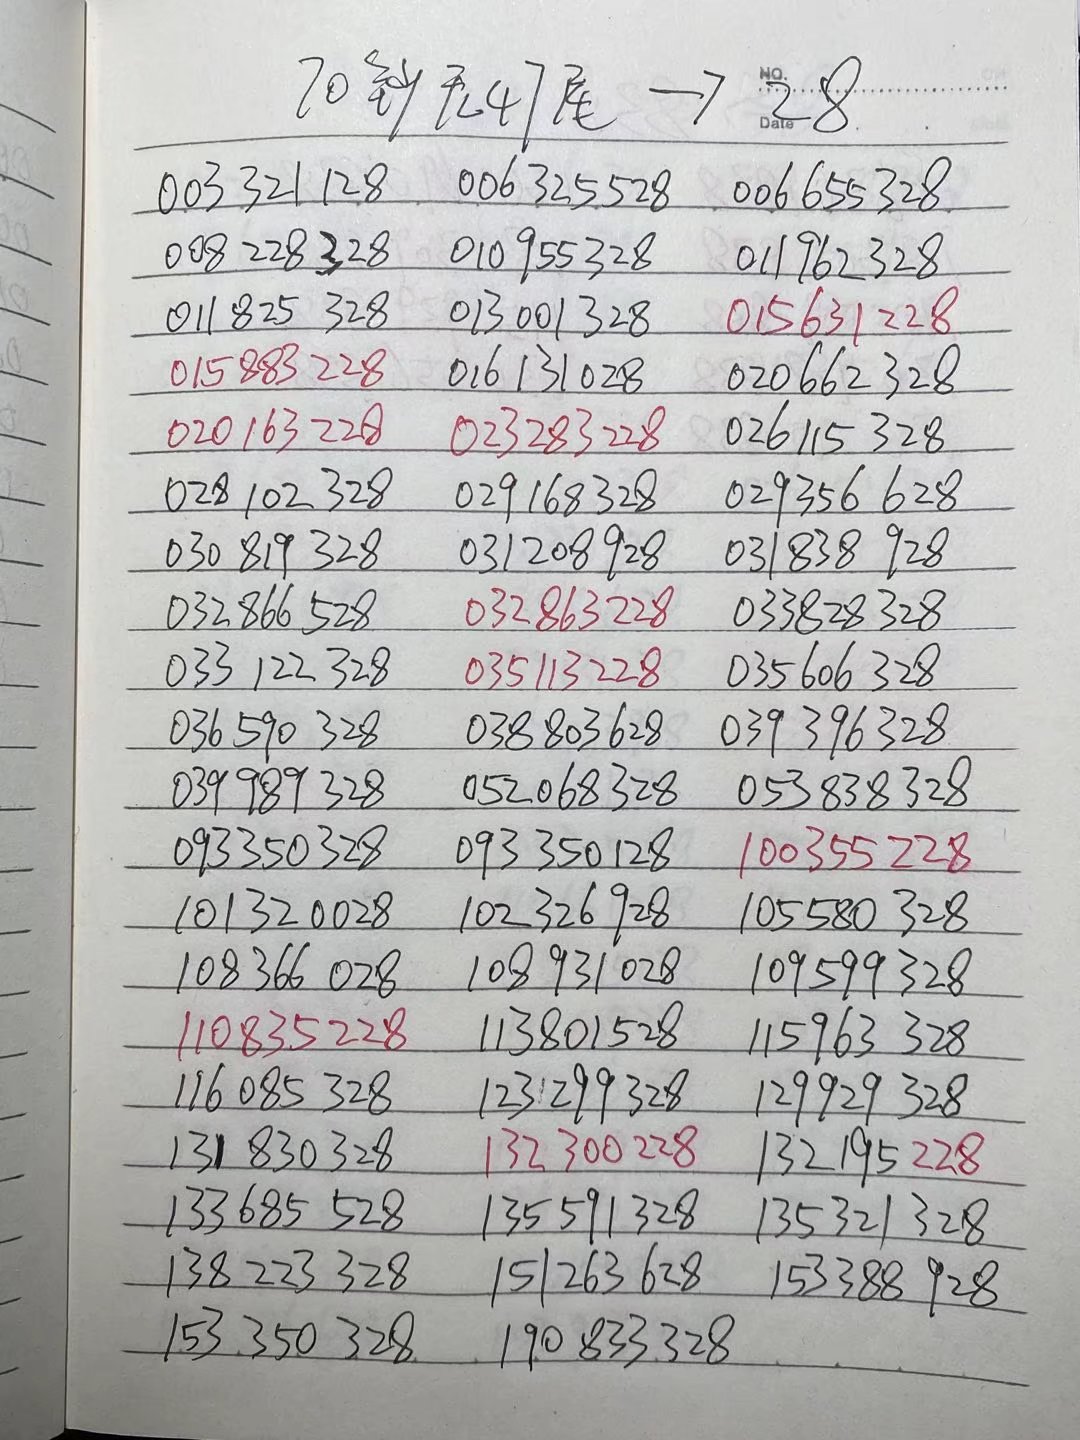 70到无47尾→28
NO.
Date
003 321 128 006 325 528 006 655 328
008 228 328 010 955 328 011 962 328
011 825 328 013 001 328 015 631 228
015 883 228 016 131 028 020 662 328
020 163 228 023 283 228 026 115 328
028 102 328 029 168 328 029 356 628
030 819 328 031 208 928 031 838 928
032 866 528 032 863 228 033 828 328
033 122 328 035 113 228 035 606 328
036 590 328 038 803 628 039 396 328
039 989 328 052 068 328 053 838 328
093 350 328 093 350 128 100 355 228
101 320 028 102 326 928 105 580 328
108 366 028 108 931 028 109 599 328
110 835 228 113 801 528 115 963 328
116 085 328 123 299 328 129 929 328
131 830 328 132 300 228 132 195 228
133 685 528 135 591 328 135 321 328
138 223 328 151 263 628 153 388 928
153 350 328 190 833 328